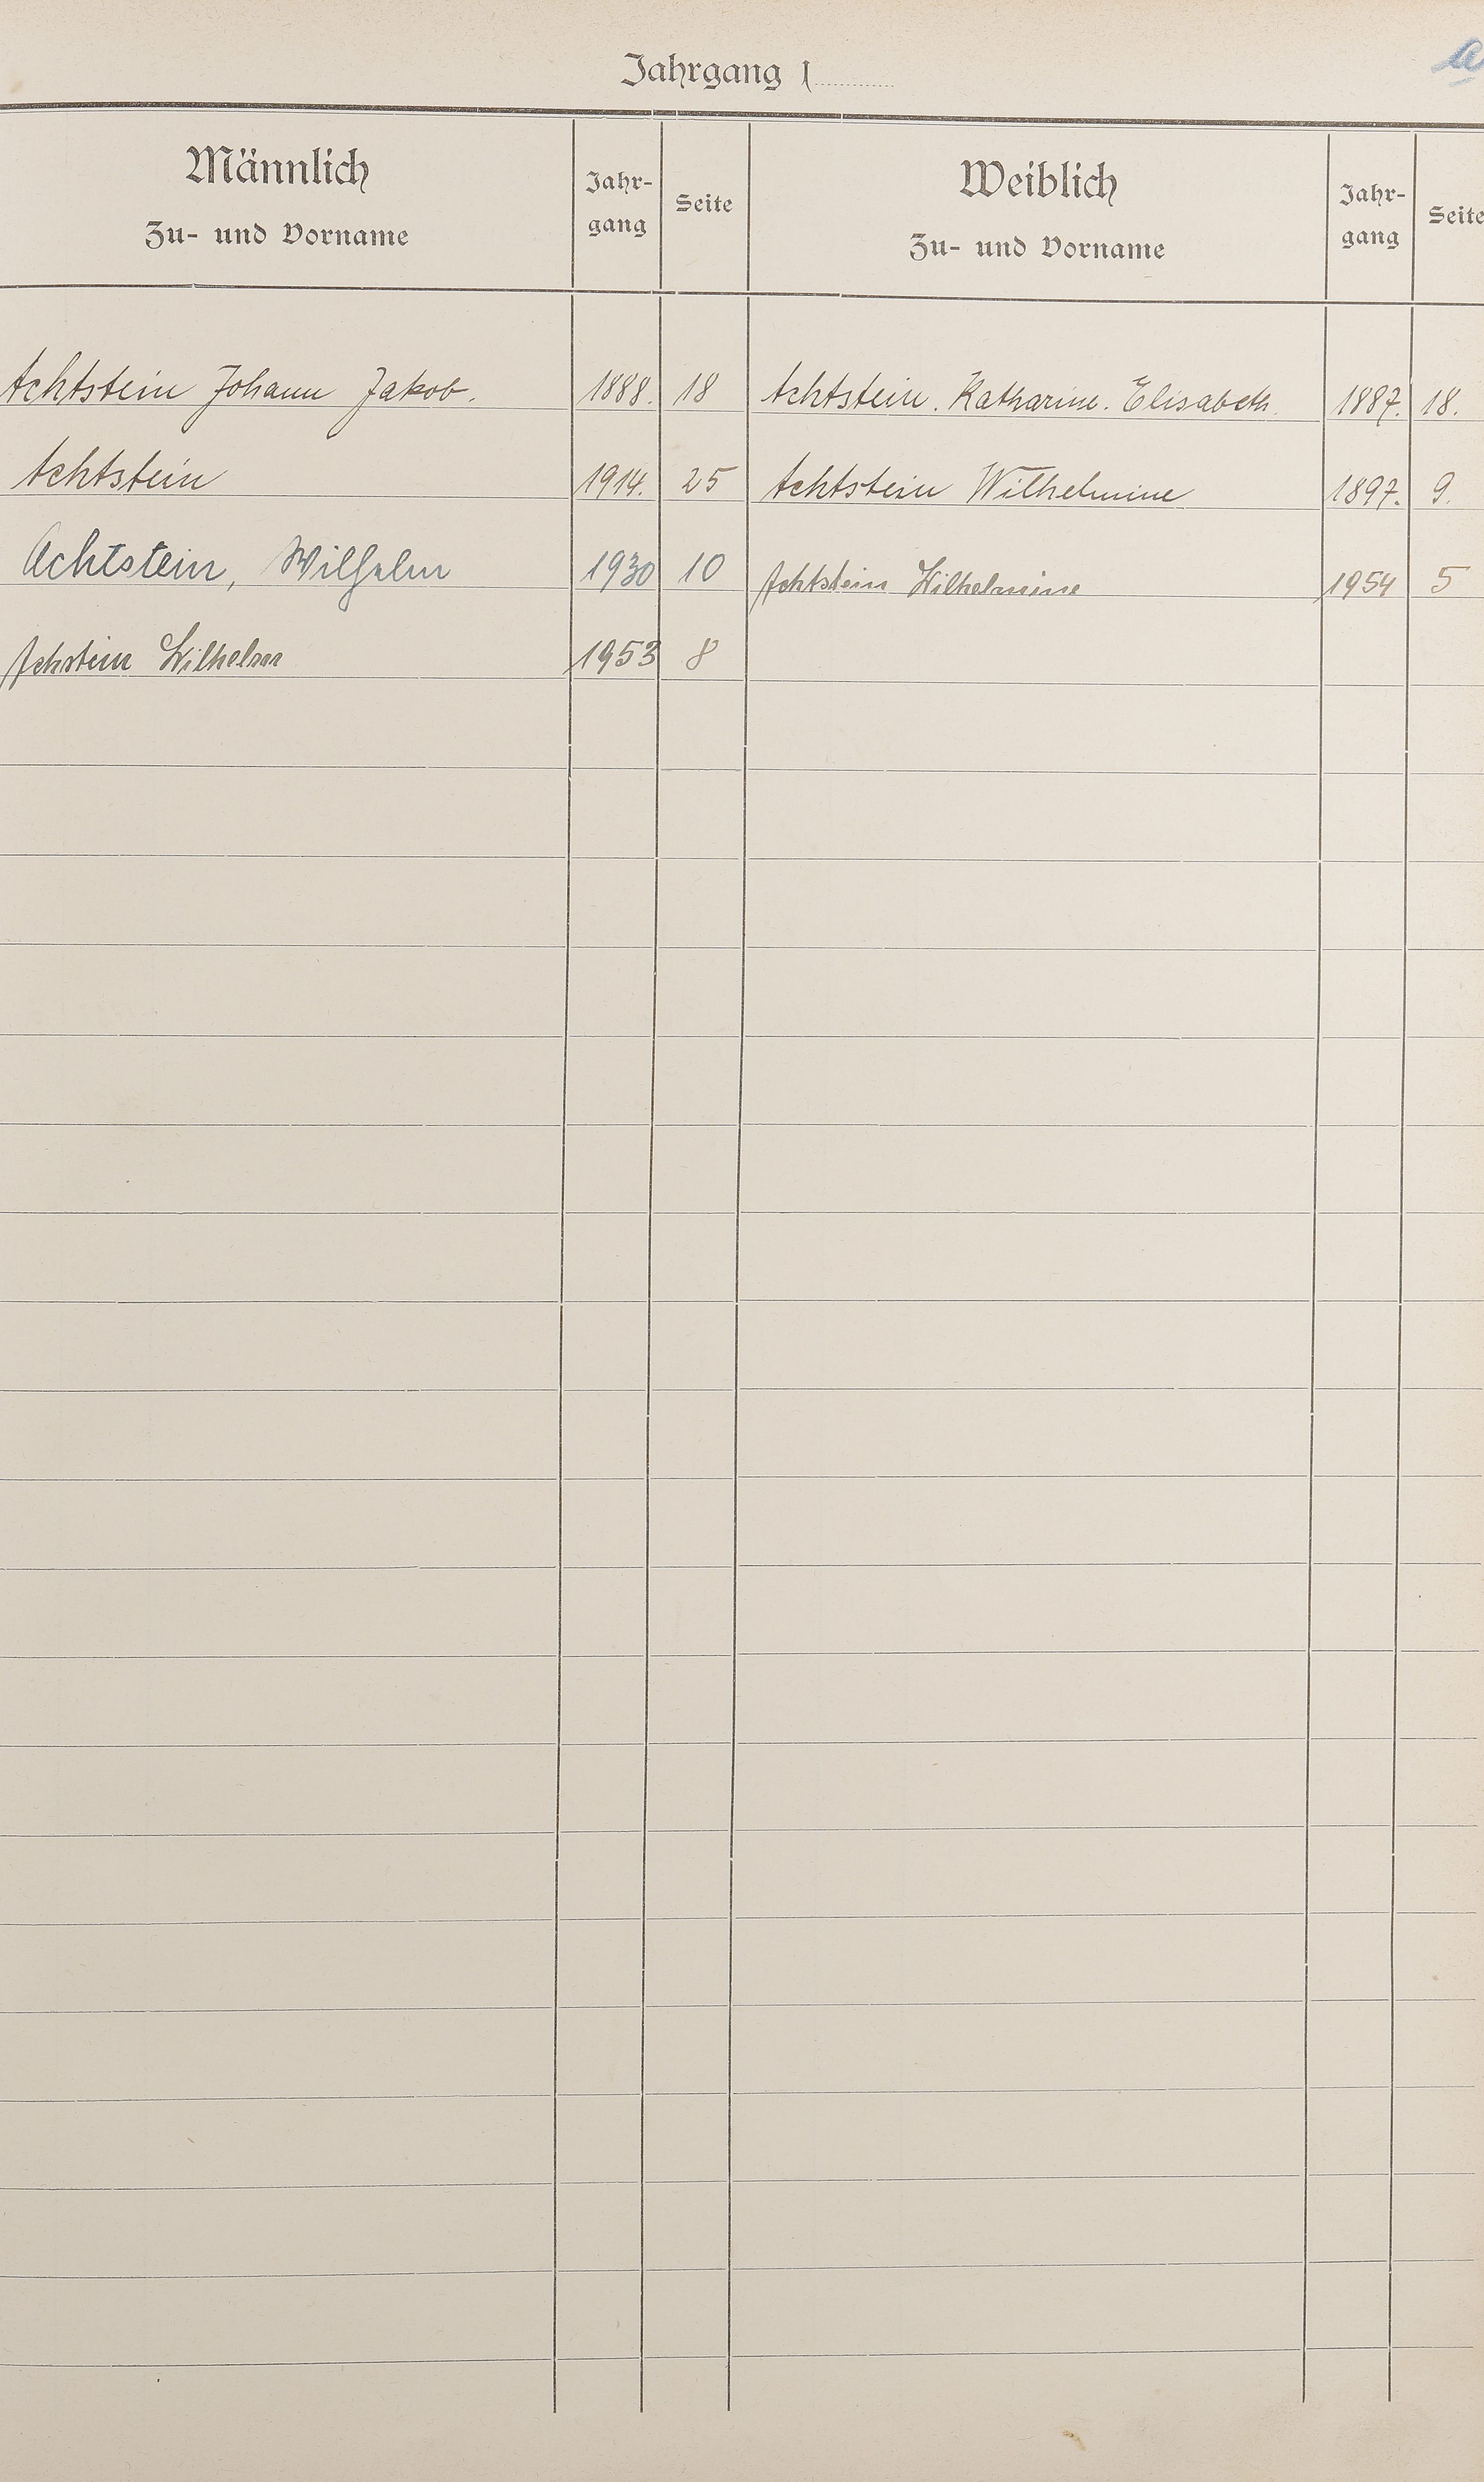 Jahrgang 1
a
Männlich
Zu- und Vorname
Jahr-
gang
Seite
Weiblich
Zu- und Vorname
Jahr-
gang
Seite
Achtstein Johann Jakob. 1888. 18 Achtstein. Katharine. Elisabeth. 1887. 18.
Achtstein 1914. 25 Achtstein Wilhelmine 1897. 9.
Achtstein, Wilhelm 1930 10 Achtstein Wilhelmine 1954 5
Achstein Wilhelm 1953 8